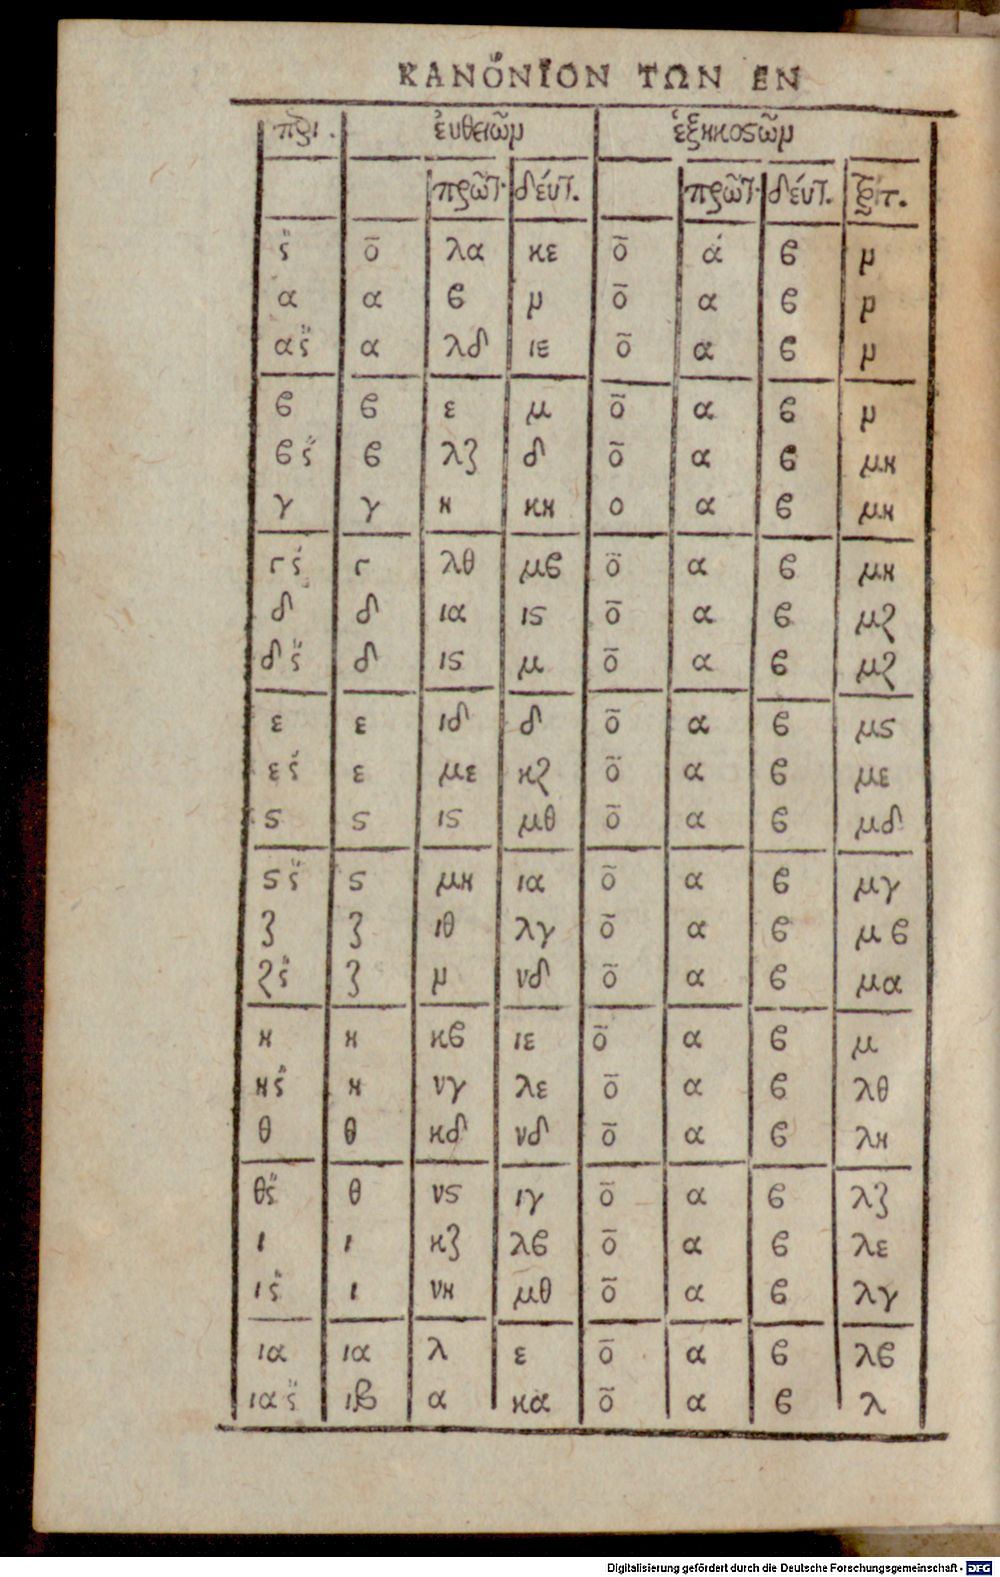 ΚΑΝΌΝΙΟΝ ΤΩΝ ΕΝ
πρι. ἐυθειῶμ ἑξηκοϛῶμ
πρῶτ. δέυτ. πρῶτ. δέυτ. τρίτ.
ϛ̋ ο̅ λα κε ο̅ ά β μ
α α β μ ο̅ α β μ
αϛ̋ α λδ ιε ο̅ α β μ
β β ε μ ο̅ α β μ
βϛ̋ β λζ δ ο̅ α β μη
γ γ η κη ο α β μη
γϛ̋ γ λθ μβ ο̅ α β μη
δ δ ια ιϛ ο̅ α β μζ
δϛ̋ δ ιϛ μ ο̅ α β μζ
ε ε ιδ δ ο̅ α β μϛ
εϛ̋ ε με κζ ο̅ α β με
ϛ ϛ ιϛ μθ ο̅ α β μδ
ϛϛ̋ ϛ μη ια ο̅ α β μγ
ζ ζ ιθ λγ ο̅ α β μβ
ζϛ̋ ζ μ νδ ο̅ α β μα
η η κβ ιε ο̅ α β μ
ηϛ̋ η νγ λε ο̅ α β λθ
θ θ κδ νδ ο̅ α β λη
θϛ̋ θ νϛ ιγ ο̅ α β λζ
ι ι κζ λβ ο̅ α β λε
ιϛ̋ ι νη μθ ο̅ α β λγ
ια ια λ ε ο̅ α β λβ
ιαϛ̋ ιβ α κα ο̅ α β λ
Digitalisierung gefördert durch die Deutsche Forschungsgemeinschaft - DFG